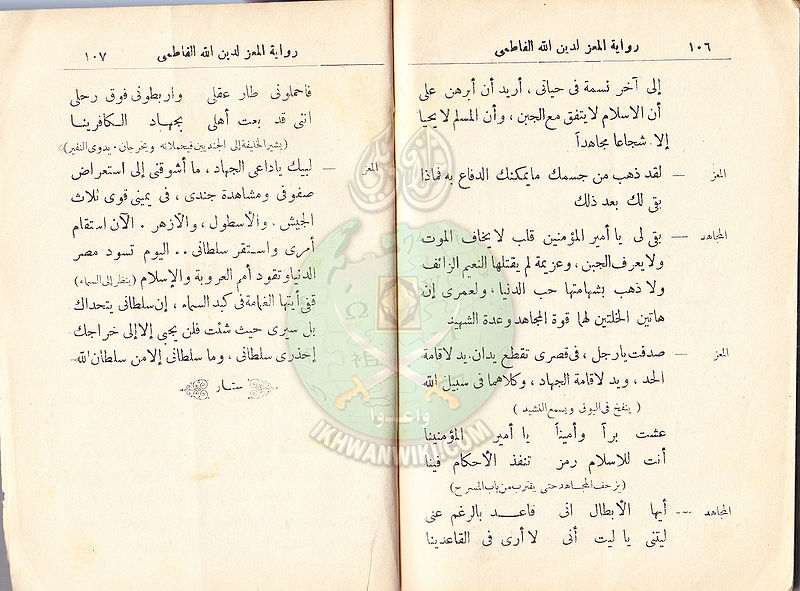 ١٠٦ رواية المعز لدين الله الفاطمى
إلى آخر نسمة فى حياتى ، أريد أن أبرهن على
أن الاسلام لا يتفق مع الجبن ، وأن المسلم لا يحيا
إلا شجاعا مجاهداً
المعز — لقد ذهب من جسمك ما يمكنك الدفاع به فماذا
بقى لك بعد ذلك
المجاهد — بقى لى يا أمير المؤمنين قلب لا يخاف الموت
ولا يعرف الجبن ، وعزيمة لم يقتلها النعيم الزائف
ولا ذهب بشهامتها حب الدنيا ، ولعمرى إن
هاتين الخلتين لهما قوة المجاهد وعدة الشهيد
المعز — صدقت يا رجل ، فى قصرى تقطع يدان . يد لاقامة
الحد ، ويد لاقامة الجهاد ، وكلاهما فى سبيل الله
( ينفخ فى البوق ويسمع النشيد )
عشت براً وأميناً يا أمير المؤمنينا
أنت للاسلام رمز تنفذ الأحكام فينا
(يزحف المجاهد حتى يقترب من باب المسرح)
المجاهد — أيها الأبطال انى قاعد بالرغم عنى
ليتنى يا ليت أنى لا أرى فى القاعدينا
رواية المعز لدين الله الفاطمى ١٠٧
فاحملونى طار عقلى واربطونى فوق رحلى
اننى قد بعت أهلى بجهاد الكافرينا
(يشير الخليفة إلى الجنديين فيحملانه ويخرجان . يدوى النفير)
المعز — لبيك ياداعى الجهاد ، ما أشوقنى إلى استعراض
صفوفى ومشاهدة جندى ، فى يمينى قوى ثلاث
الجيش . والأسطول ، والأزهر . الآن استقام
أمرى واستقر سلطانى .. اليوم تسود مصر
الدنيا وتقود أمم العروبة والإسلام (ينظر إلى السماء)
قفى أيتها الغمامة فى كبد السماء ، إن سلطانى يتحداك
بل سيرى حيث شئت فلن يجبى إلا إلى خراجك
إحذرى سلطانى ، وما سلطانى إلا من سلطان الله
ستار
واعدوا
IKHWANWIKI.COM